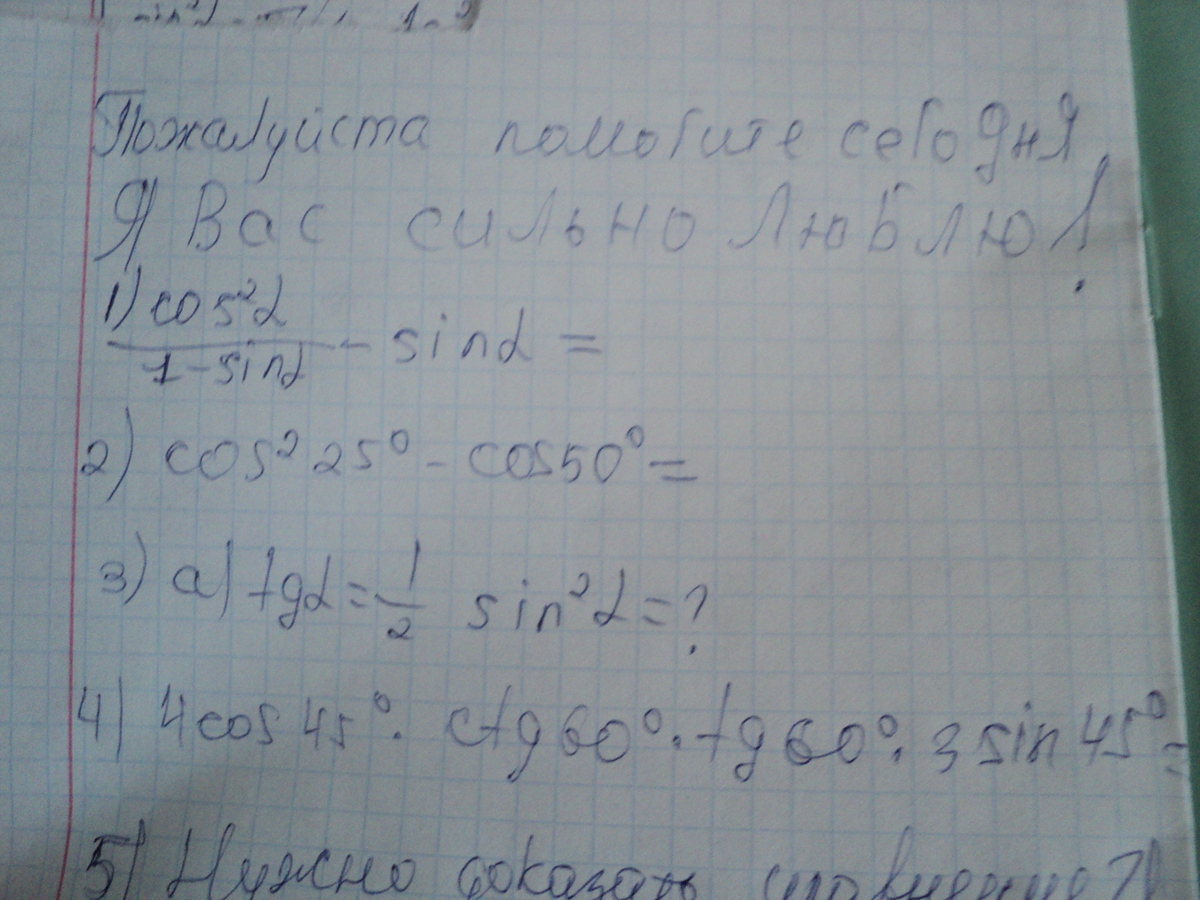 Пожалуйста помогите сегодня
Я Вас сильно люблю!
1) cos²α / 1-sinα - sinα =
2) cos² 25° - cos50° =
3) а) tgα = 1/2 sin²α = ?
4) 4cos 45° · ctg 60° · tg 60° · 3 sin 45° =
5) Нужно доказать